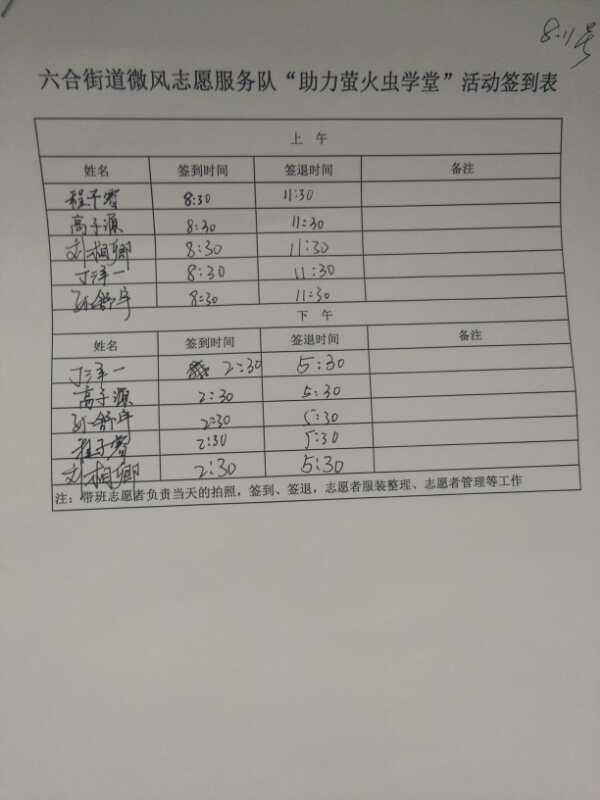 8.11号
六合街道微风志愿服务队“助力萤火虫学堂”活动签到表
上 午
姓名 签到时间 签退时间 备注
程子 8:30 11:30
高子源 8:30 11:30
刘桐卿 8:30 11:30
一 8:30 11:30
孙舒宇 8:30 11:30
下 午
姓名 签到时间 签退时间 备注
一 2:30 5:30
高子源 2:30 5:30
孙舒宇 2:30 5:30
程子 2:30 5:30
刘桐卿 2:30 5:30
注：带班志愿者负责当天的拍照，签到、签退，志愿者服装整理、志愿者管理等工作